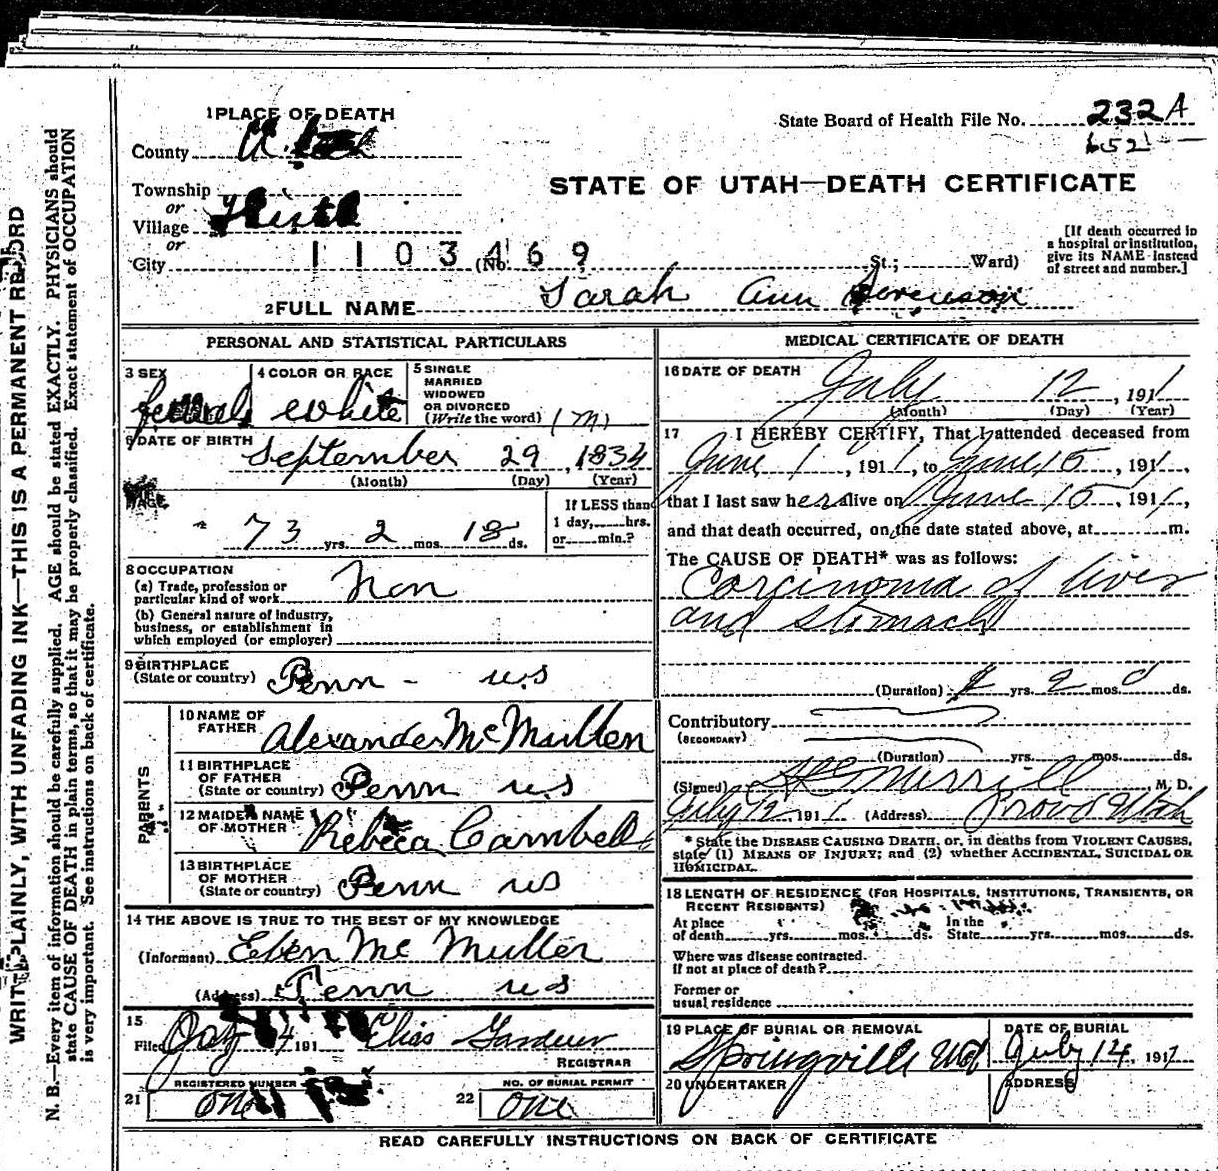 1 PLACE OF DEATH
State Board of Health File No. 232A
652
County Utah
STATE OF UTAH—DEATH CERTIFICATE
Township
or
Village Thistle
or
City (No. St.; Ward)
1103469
[If death occurred in
a hospital or institution,
give its NAME instead
of street and number.]
2 FULL NAME Sarah Ann Sorenson
PERSONAL AND STATISTICAL PARTICULARS
3 SEX female
4 COLOR OR RACE white
5 SINGLE
MARRIED
WIDOWED
OR DIVORCED
(Write the word) (M)
6 DATE OF BIRTH
September 29, 1834
(Month) (Day) (Year)
AGE
73 yrs. 2 mos. 18 ds.
If LESS than
1 day, hrs.
or min.?
8 OCCUPATION
(a) Trade, profession or
particular kind of work Non
(b) General nature of industry,
business, or establishment in
which employed (or employer)
9 BIRTHPLACE
(State or country) Penn - u.s
PARENTS
10 NAME OF
FATHER Alexander McMullen
11 BIRTHPLACE
OF FATHER
(State or country) Penn u.s
12 MAIDEN NAME
OF MOTHER Rebeca Cambell
13 BIRTHPLACE
OF MOTHER
(State or country) Penn us
14 THE ABOVE IS TRUE TO THE BEST OF MY KNOWLEDGE
(Informant) Eben Mc Mullen
(Address) Penn us
15
Filed 4 191 Elias Gardner
REGISTRAR
REGISTERED NUMBER
21 one
NO. OF BURIAL PERMIT
22 one
MEDICAL CERTIFICATE OF DEATH
16 DATE OF DEATH
July 12, 1911
(Month) (Day) (Year)
17 I HEREBY CERTIFY, That I attended deceased from
June 1, 1911, to June 15, 1911,
that I last saw her alive on June 15, 1911,
and that death occurred, on the date stated above, at m.
The CAUSE OF DEATH* was as follows:
Carcinoma of liver
and stomach
(Duration) yrs. 2 mos. 0 ds.
Contributory
(SECONDARY)
(Duration) yrs. mos. ds.
(Signed) Merrill, M. D.
July 12, 1911 (Address) Provo Utah
* State the DISEASE CAUSING DEATH, or, in deaths from VIOLENT CAUSES,
state (1) MEANS OF INJURY; and (2) whether ACCIDENTAL, SUICIDAL OR
HOMICIDAL.
18 LENGTH OF RESIDENCE (FOR HOSPITALS, INSTITUTIONS, TRANSIENTS, OR
RECENT RESIDENTS)
At place
of death yrs. mos. ds.
In the
State yrs. mos. ds.
Where was disease contracted
if not at place of death?
Former or
usual residence
19 PLACE OF BURIAL OR REMOVAL
Springville Ut
DATE OF BURIAL
July 14, 1911
20 UNDERTAKER
ADDRESS
READ CAREFULLY INSTRUCTIONS ON BACK OF CERTIFICATE
WRITE PLAINLY, WITH UNFADING INK—THIS IS A PERMANENT RECORD
N. B.—Every item of information should be carefully supplied. AGE should be stated EXACTLY. PHYSICIANS should
state CAUSE OF DEATH in plain terms, so that it may be properly classified. Exact statement of OCCUPATION
is very important. See instructions on back of certificate.